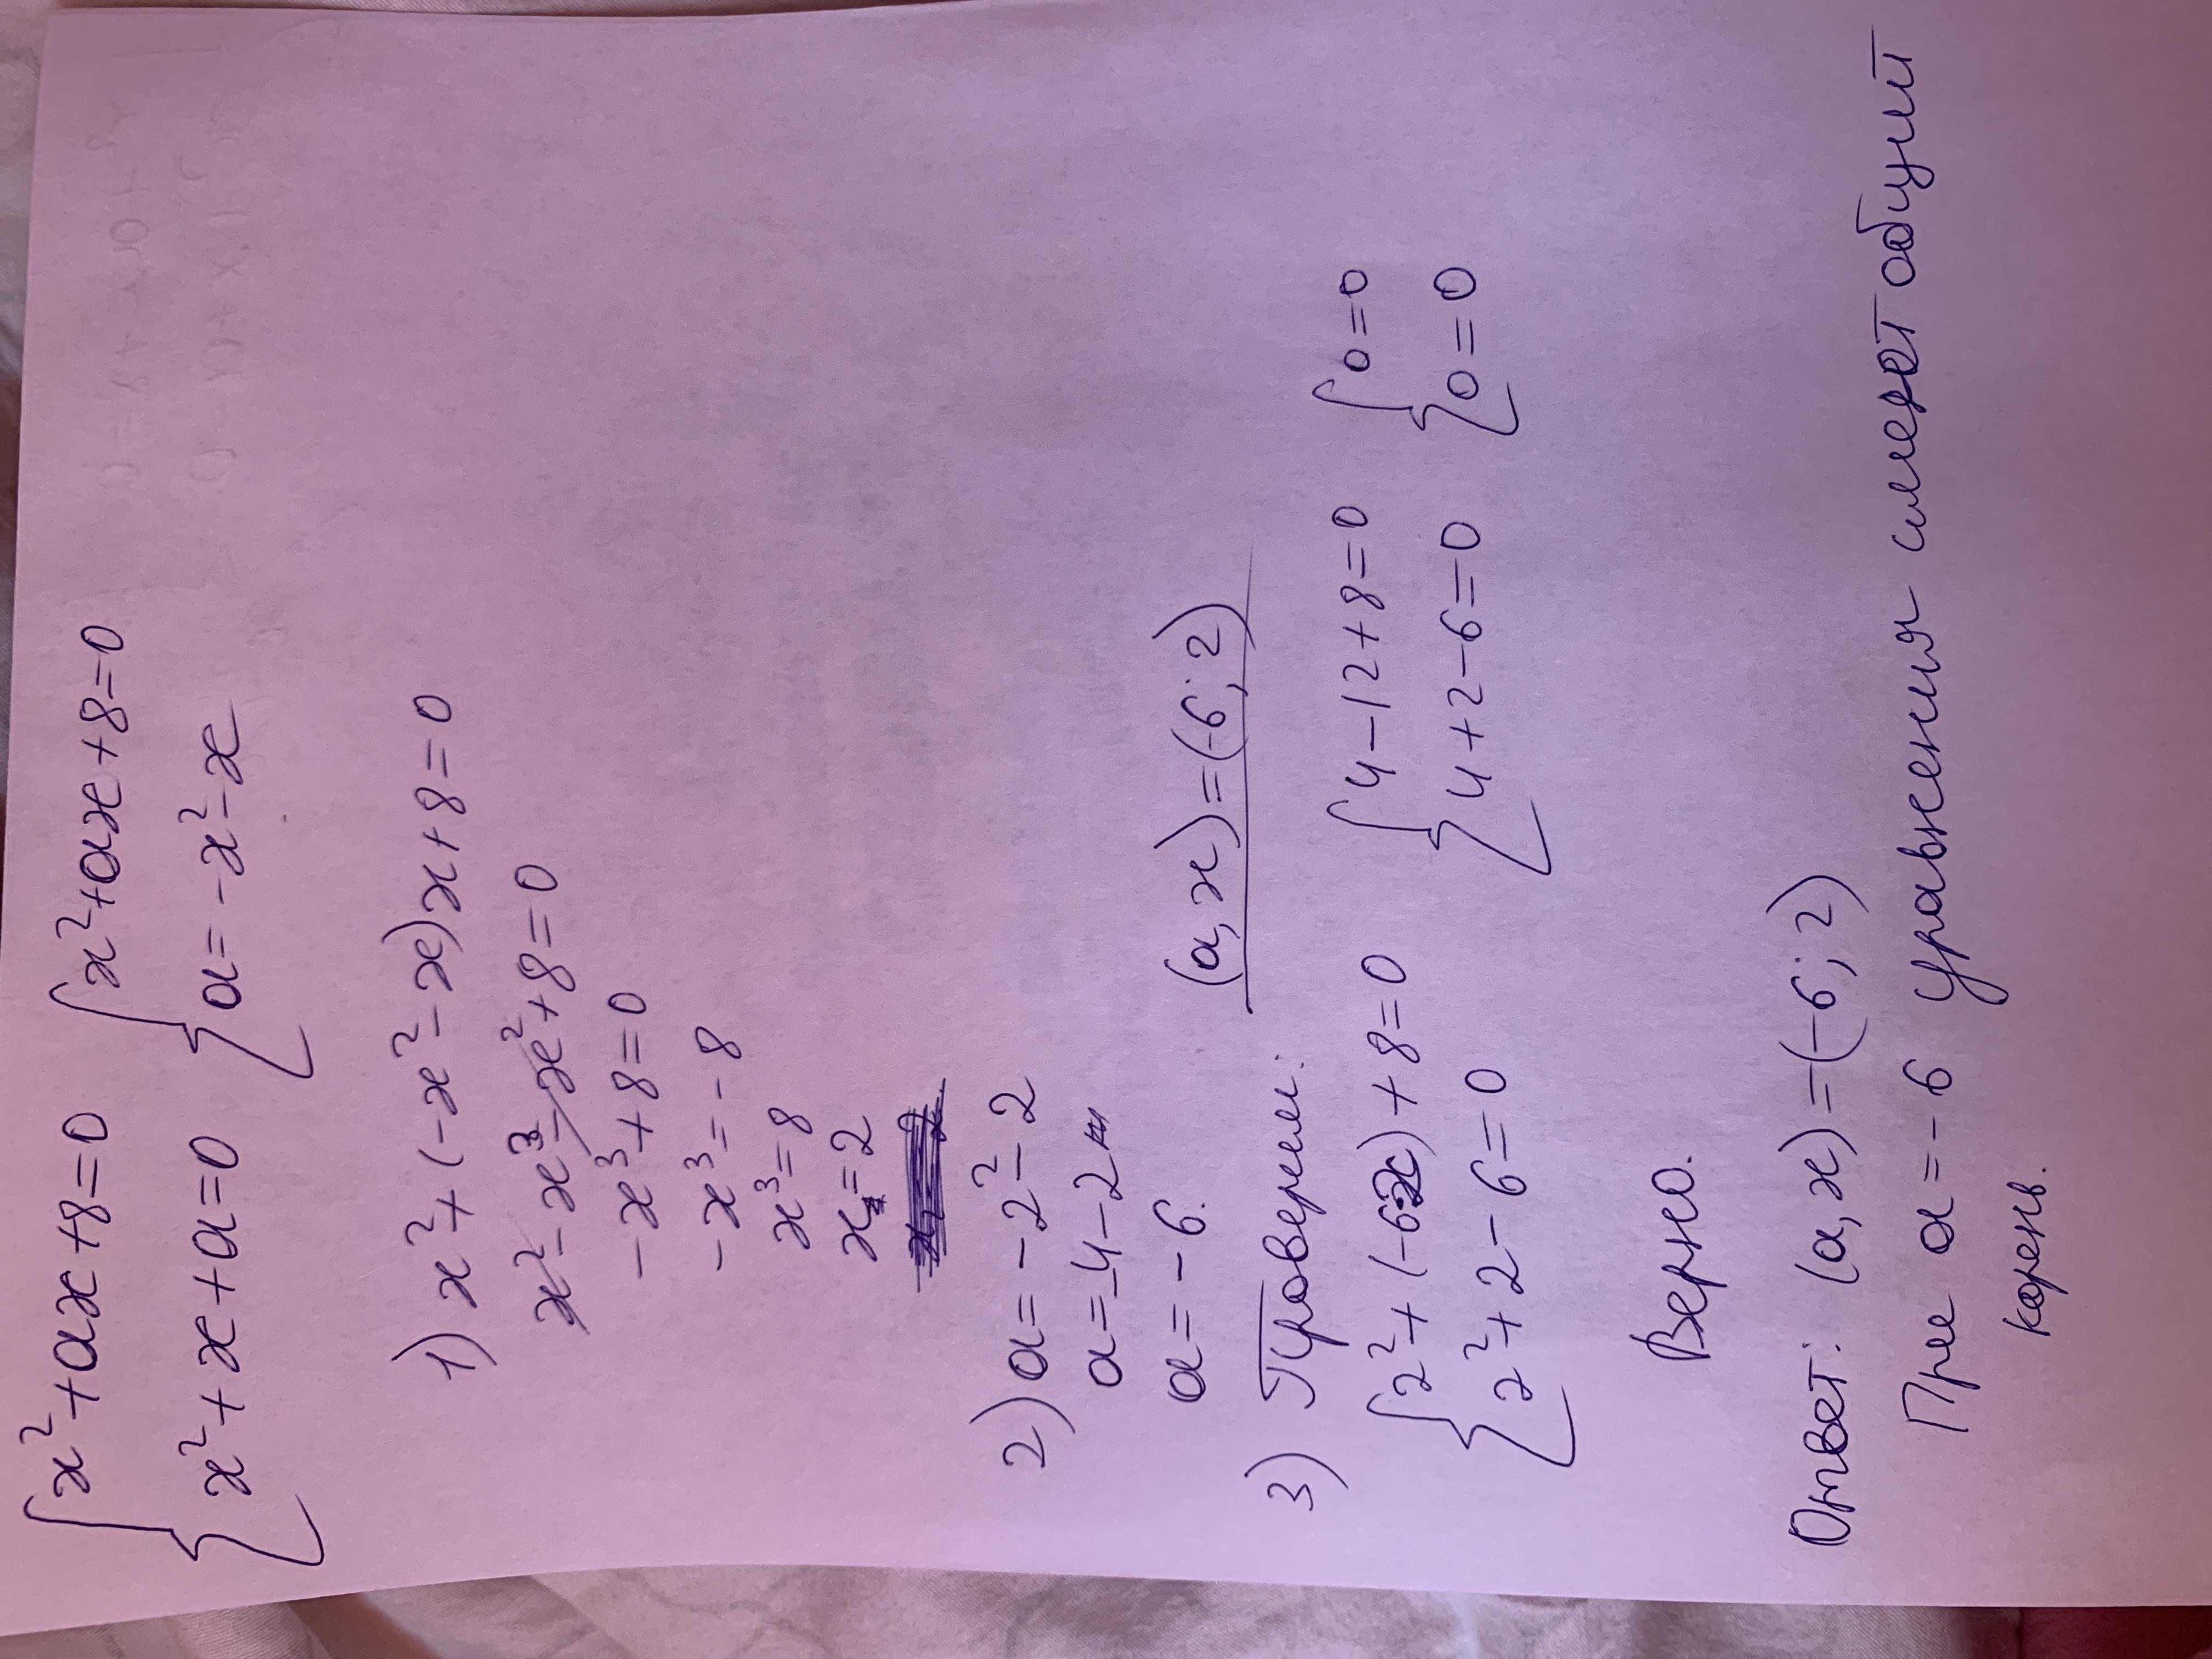 {x²+ax+8=0 {x²+ax+8=0
{x²+x+a=0 {a=-x²-x
1) x²+(-x²-x)x+8=0
x²-x³-x²+8=0
-x³+8=0
-x³=-8
x³=8
x=2
2) a=-2²-2
a=-4-2
a=-6.
(a,x)=(-6;2)
3) Проверим:
{2²+(-6·2)+8=0 {4-12+8=0 {0=0
{2²+2-6=0 {4+2-6=0 {0=0
Верно.
Ответ: (a,x)=(-6;2)
При a=-6 уравнения имеют общий
корень.